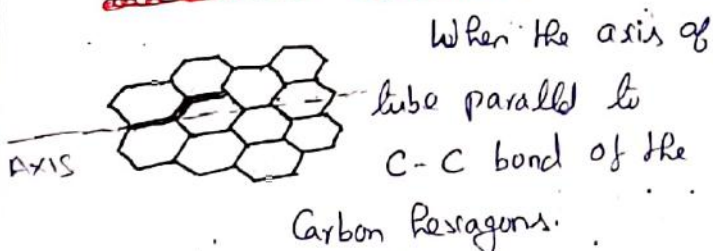 When the axis of
tube parallel to
AXIS
C-C bond of the
Carbon hexagons.